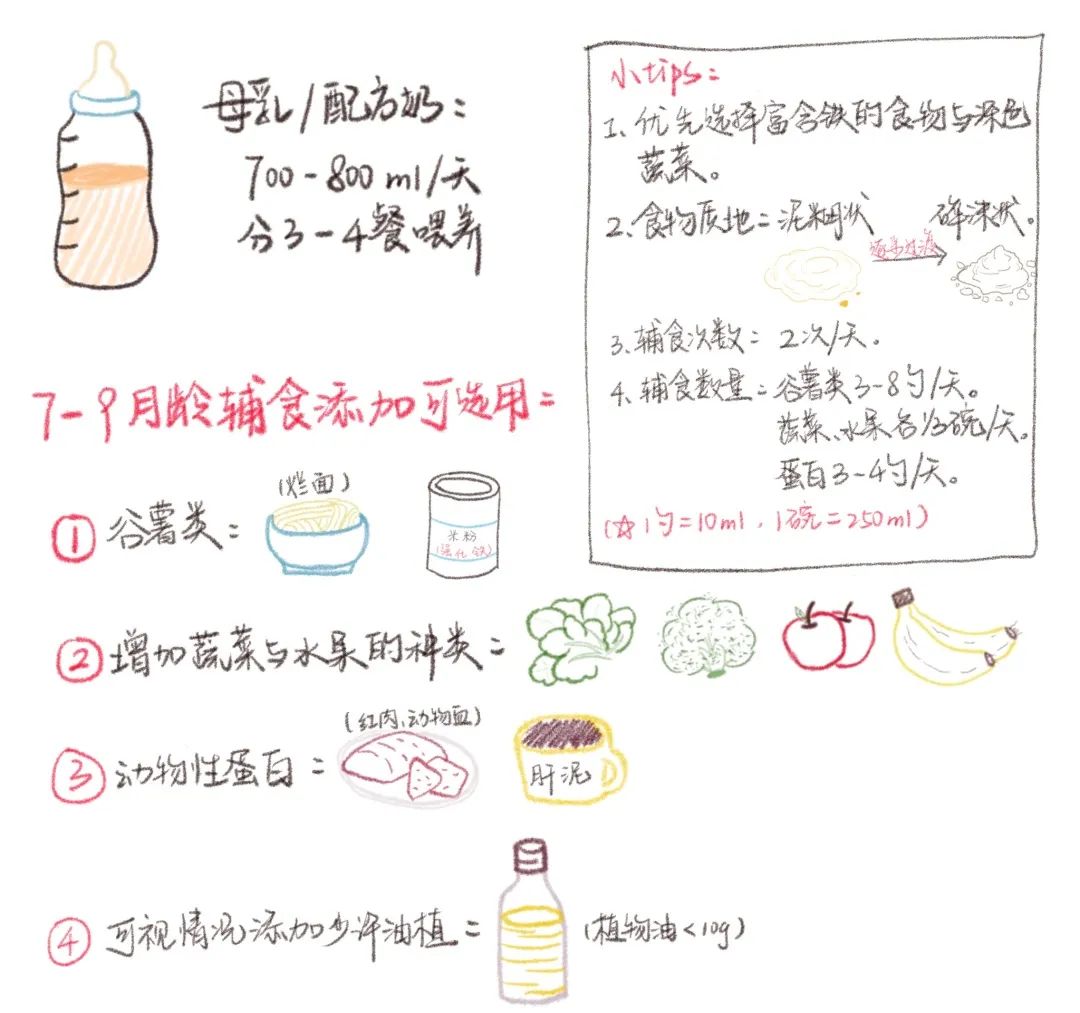 母乳/配方奶:
700-800 ml/天
分3-4餐喂养
小tips:
1、优先选择富含铁的食物与深色
蔬菜。
2、食物质地:泥糊状 逐步过渡 碎沫状。
3、辅食次数: 2次/天。
4、辅食数量:谷薯类3-8勺/天。
蔬菜、水果各1/3碗/天。
蛋白3-4勺/天。
(☆1勺=10ml,1碗=250ml)
7-9月龄辅食添加可选用:
① 谷薯类:
(烂面)
米粉
(强化铁)
② 增加蔬菜与水果的种类:
③ 动物性蛋白:
(红肉、动物血)
肝泥
④ 可视情况添加少许油植:
(植物油<10g)